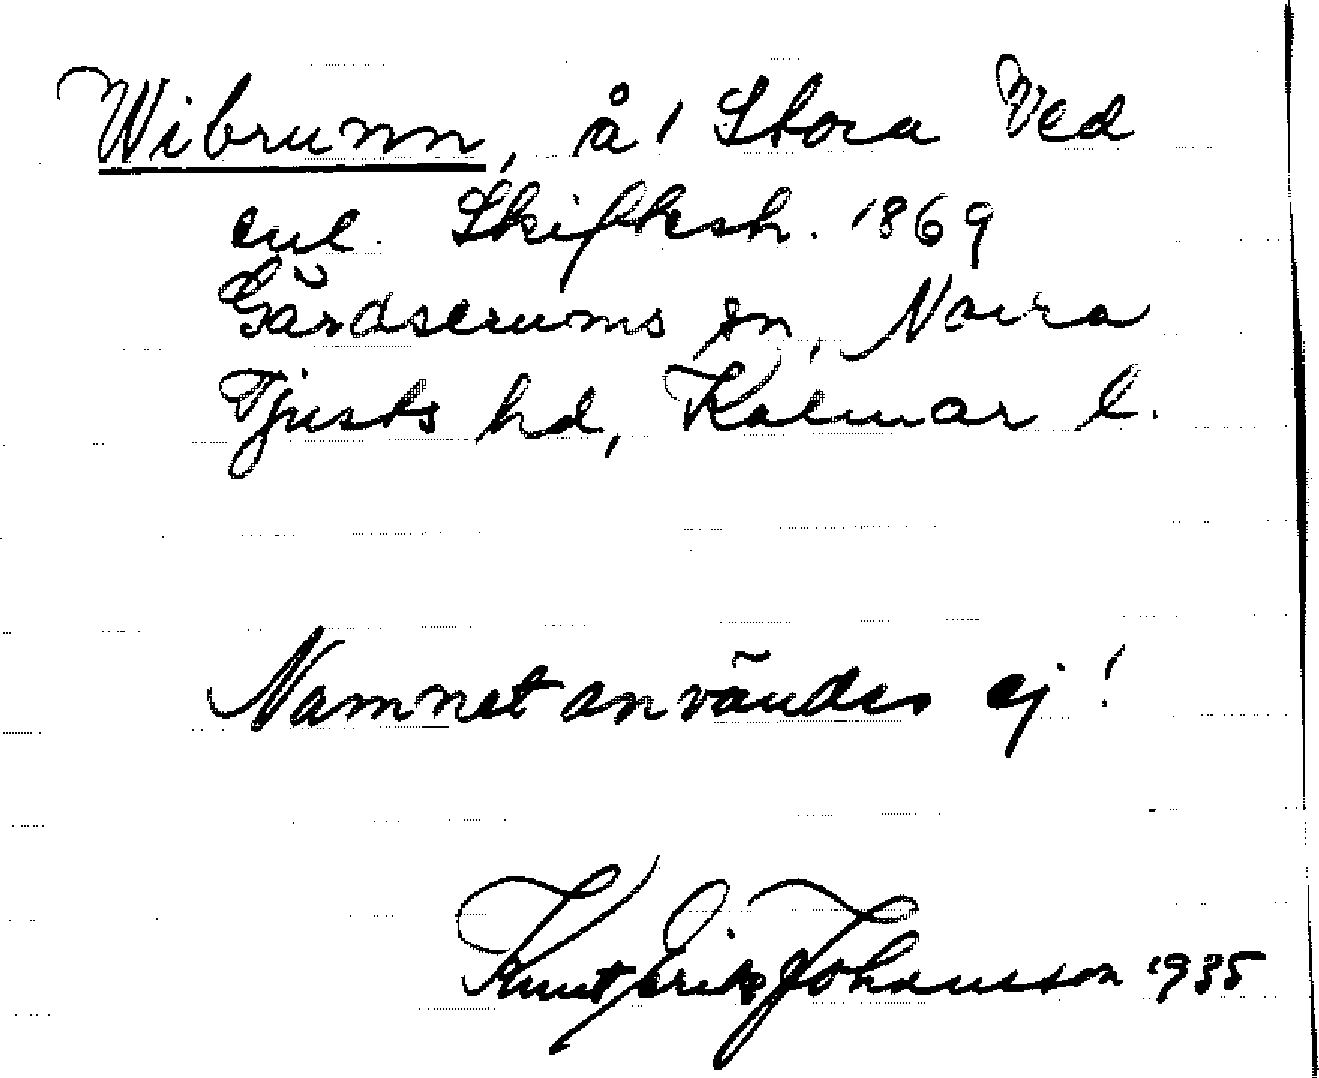 Wibrunn, å Stora Ved
enl. Skifksh. 1869
Gärdserums sn, Norra
Tjusts hd, Kalmar l.
Namnet användes ej!
Knut Erik Johansson 1935